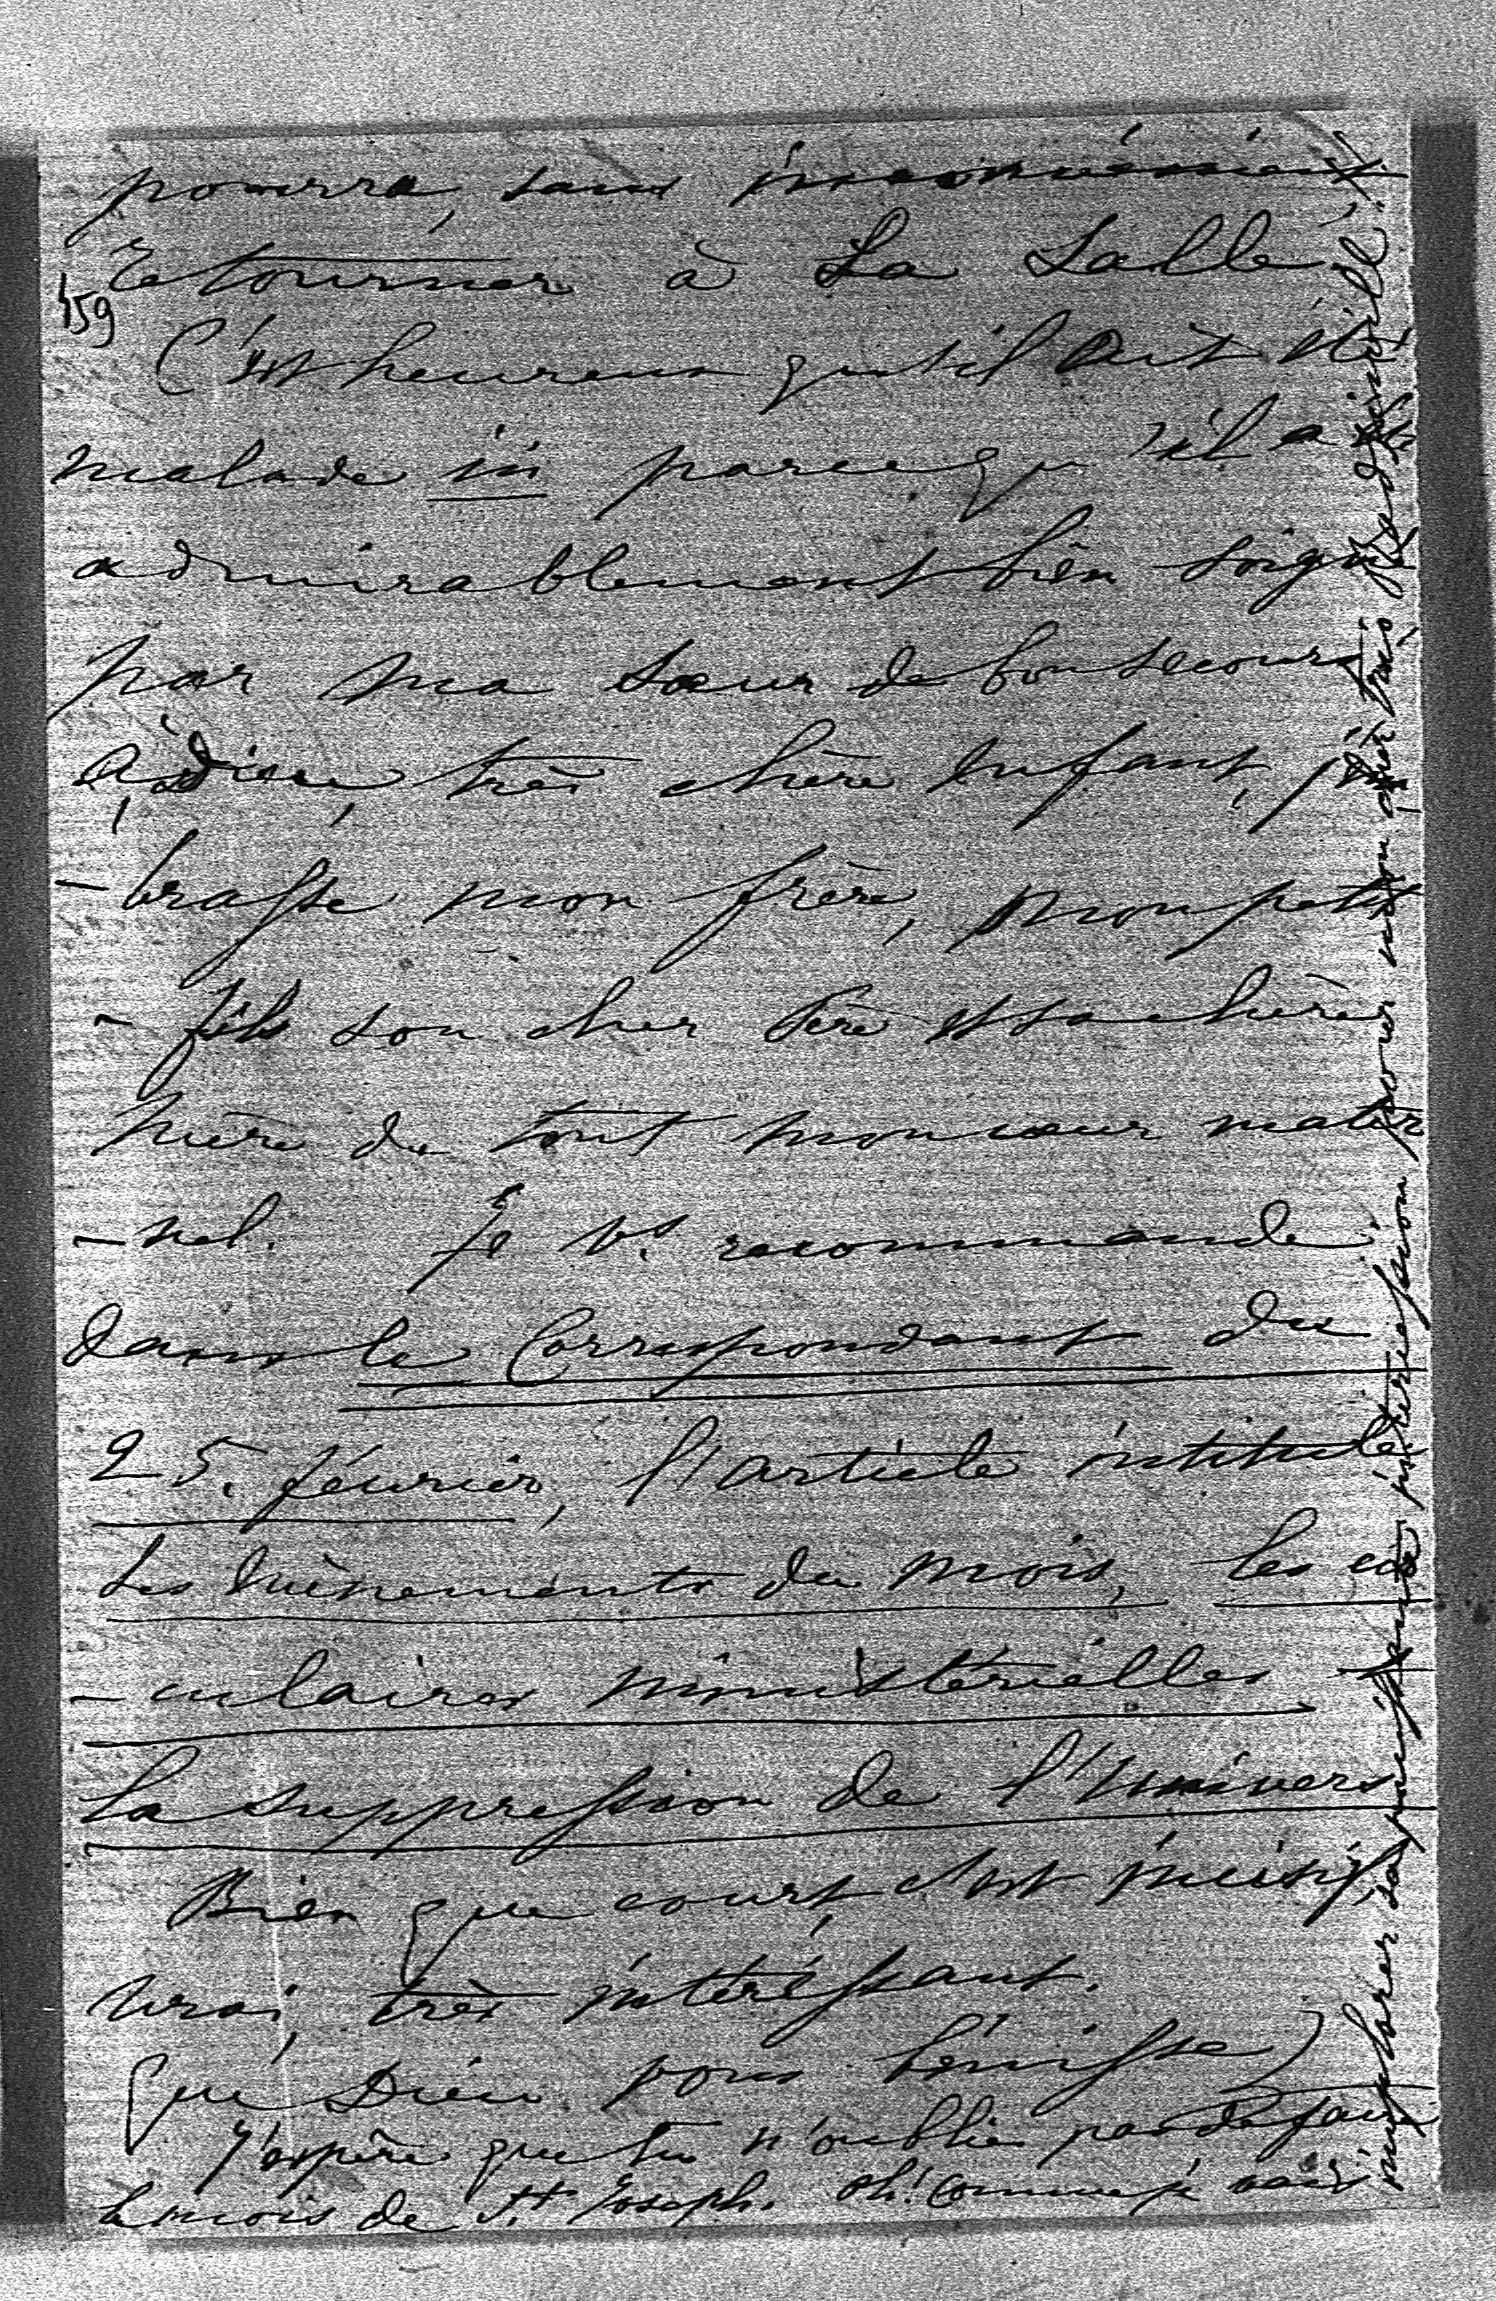 pourra, sans inconvénient,
retourner à La Salle,
159
C'est heureux qu'il ait été
malade ici parce qu'il a été
admirablement bien soigné
par ma sœur de bonsecours
Adieu, très chère enfant, j'em
- brasse mon frère, mon petit
- fils son cher Père et sa chère
mère de tout mon cœur mater
- nel. Je vs recommande
dans le Correspondant du
25. février, l'article intitulé
Les évènements du mois, les cir
- culaires ministérielles
La suppression de l'Univers
Bien que court, c'est incisif,
vrai, très intéressant.
Que Dieu vous bénisse
J'espère que tu n'oublies pas de faire
le mois de St Joseph. oh! comme je vais
implorer sa puissante intercession pour mon cher